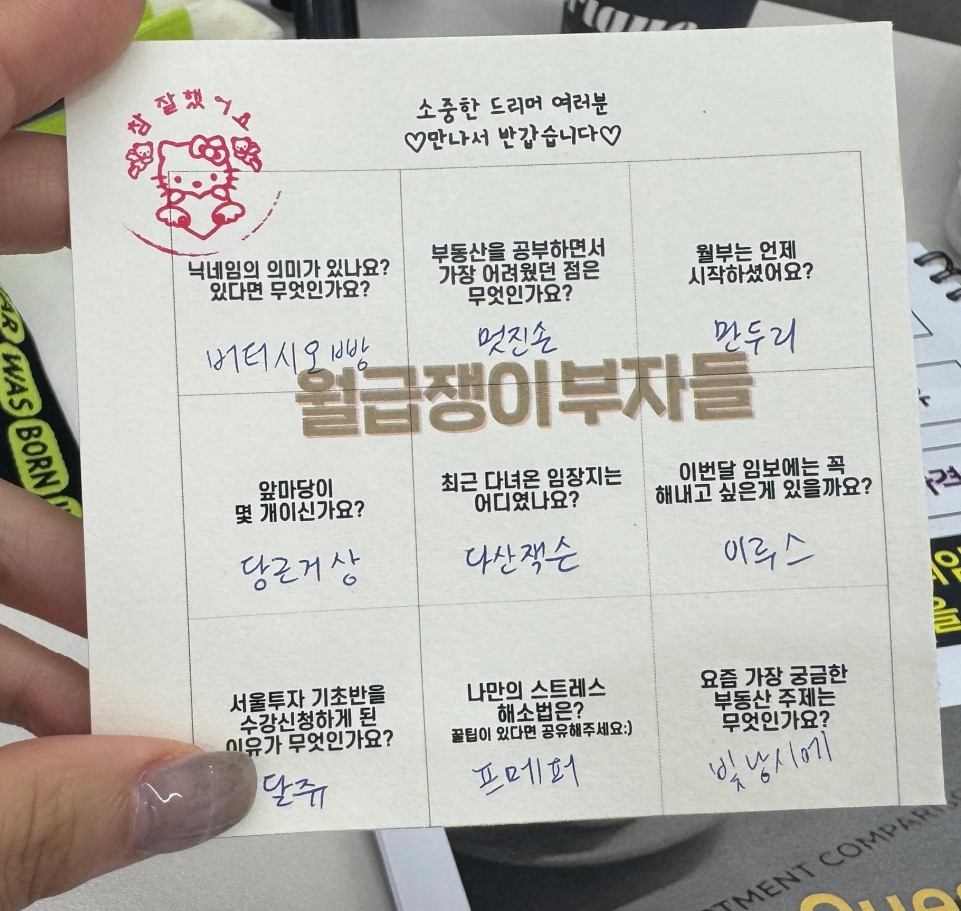 참 잘했어요
소중한 드리머 여러분
♡만나서 반갑습니다♡
닉네임의 의미가 있나요?
있다면 무엇인가요?
버터시오빵
부동산을 공부하면서
가장 어려웠던 점은
무엇인가요?
멋진손
월부는 언제
시작하셨어요?
만두리
월급쟁이부자들
앞마당이
몇 개이신가요?
당근거상
최근 다녀온 임장지는
어디였나요?
다산잭슨
이번달 임보에는 꼭
해내고 싶은게 있을까요?
이루스
서울투자 기초반을
수강신청하게 된
이유가 무엇인가요?
달쥬
나만의 스트레스
해소법은?
꿀팁이 있다면 공유해주세요:)
프메퍼
요즘 가장 궁금한
부동산 주제는
무엇인가요?
빛낭시에
WAS
BORN